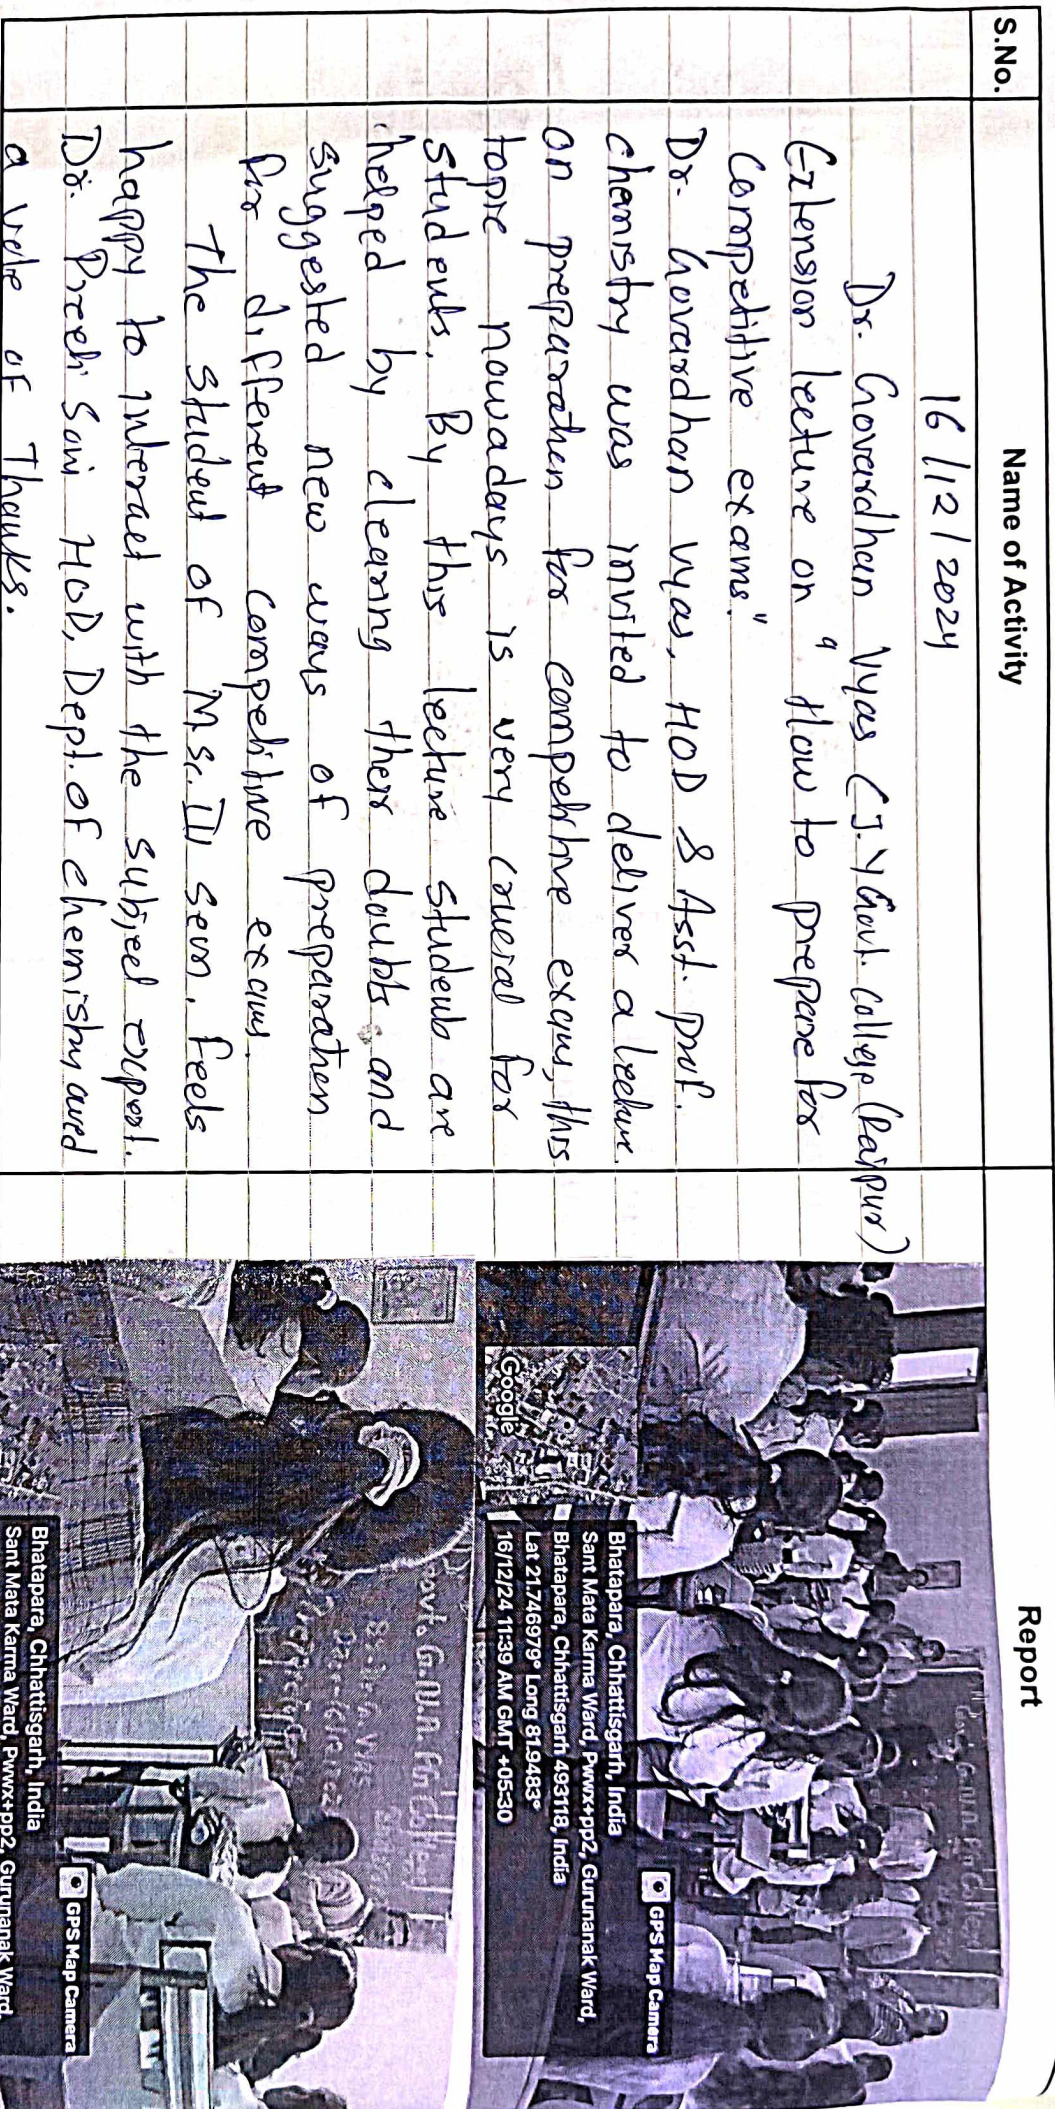 S.No. Name of Activity Report
16/12/2024
Dr. Govardhan Vyas (J.Y Govt. College (Raipur)
Extension lecture on "How to prepare for
Competitive exams."
Dr. Govardhan Vyas, HOD & Asst. prof.
chemistry was invited to deliver a lecture
on preparation for competitive exams, this
topic nowadays is very crucial for
students. By this lecture students are
helped by clearing their doubts and
suggested new ways of preparation
for different competitive exams.
The student of M.Sc. III Sem. feels
happy to interact with the subject expert.
Dr. Preeti Soni HOD, Dept. of chemistry and
a vote of Thanks.
GPS Map Camera
Bhatapara, Chhattisgarh, India
Sant Mata Karma Ward, Pwwx+pp2, Gurunanak Ward,
Bhatapara, Chhattisgarh 493118, India
Lat 21.746979° Long 81.94833°
16/12/24 11:39 AM GMT +05:30
Google
GPS Map Camera
Bhatapara, Chhattisgarh, India
Sant Mata Karma Ward, Pwwx+pp2, Gurunanak Ward,